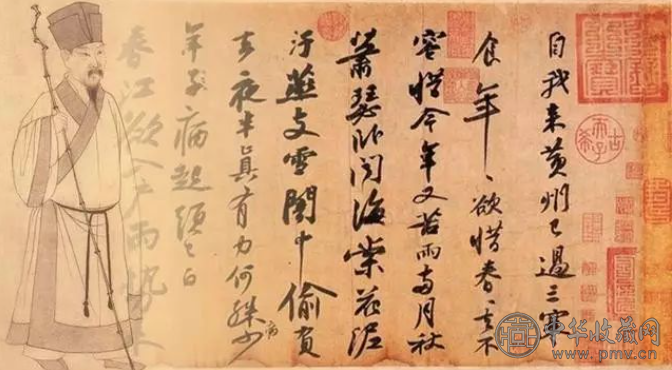 自我来黄州已過三寒
食年〻欲惜春〻去不
容惜今年又苦雨兩月秋
蕭瑟卧聞海棠花泥
汙燕支雪闇中偷負
去夜半真有力何殊少
病
年子病起須已白
春江欲入户雨勢来
中华收藏网
www.pmv.cn